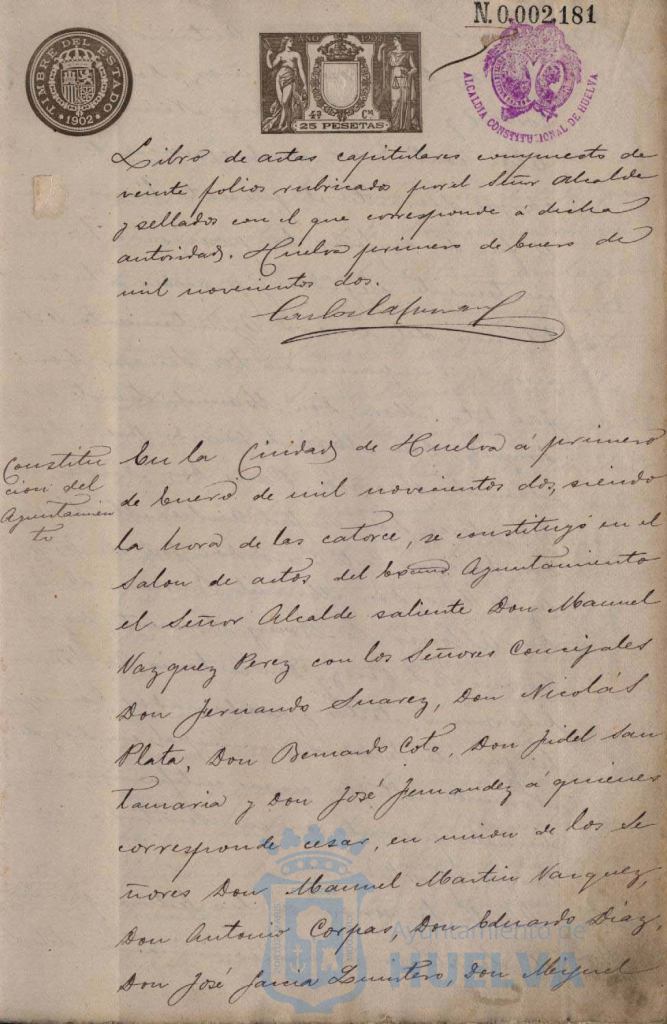 N.0,002,181
TIMBRE DEL ESTADO
1902
AÑO 1902
4ª Cª
25 PESETAS
ALCALDIA CONSTITUCIONAL DE HUELVA
Libro de actas capitulares compuesto de
veinte folios rubricados por el Señor Alcalde
y sellados con el que corresponde á dicha
autoridad. Huelva primero de Enero de
mil novecientos dos.
Constitu
cion del
Ayuntamien
to
En la Ciudad de Huelva á primero
de Enero de mil novecientos dos, siendo
la hora de las catorce, se constituyó en el
Salon de actos del Excmo. Ayuntamiento
el Señor Alcalde saliente Don Manuel
Vazquez Perez con los Señores Concejales
Don Fernando Suarez, Don Nicolás
Plata, Don Bernardo Coto, Don Fidel San
tamaria y Don José Fernandez á quienes
corresponde cesar, en union de los Se
ñores Don Manuel Martin Vazquez,
Don Antonio Corpas, Don Eduardo Diaz,
Don José Garcia Quintero, Don Miguel
Ayuntamiento de
HUELVA